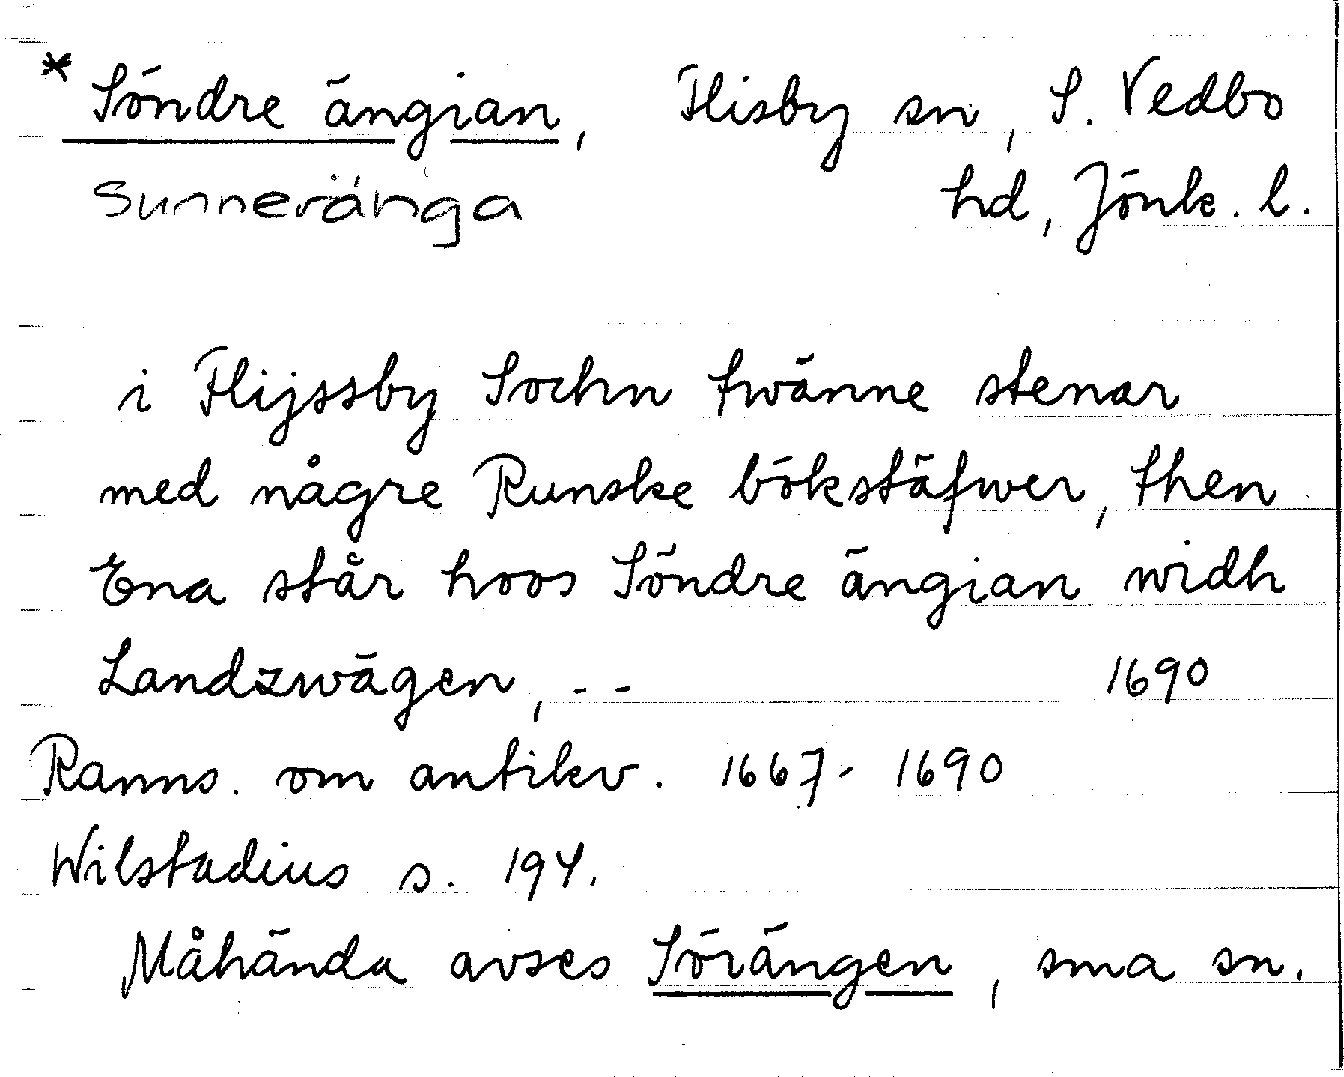 * Söndre ängian, Flisby sn, S. Vedbo
Sunneränga hd, Jönk. l.
i Flijssby Sochn twänne stenar
med någre Runske bökstäfwer, then
Ena står hoos Söndre ängian widh
Landzwägen, -- 1690
Ranns. om antikv. 1667- 1690
Wilstadius s. 194.
Måhända avses Sörängen, sma sn.